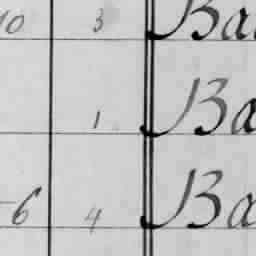 10 3 Ba
1 Ba
6 4 Ba